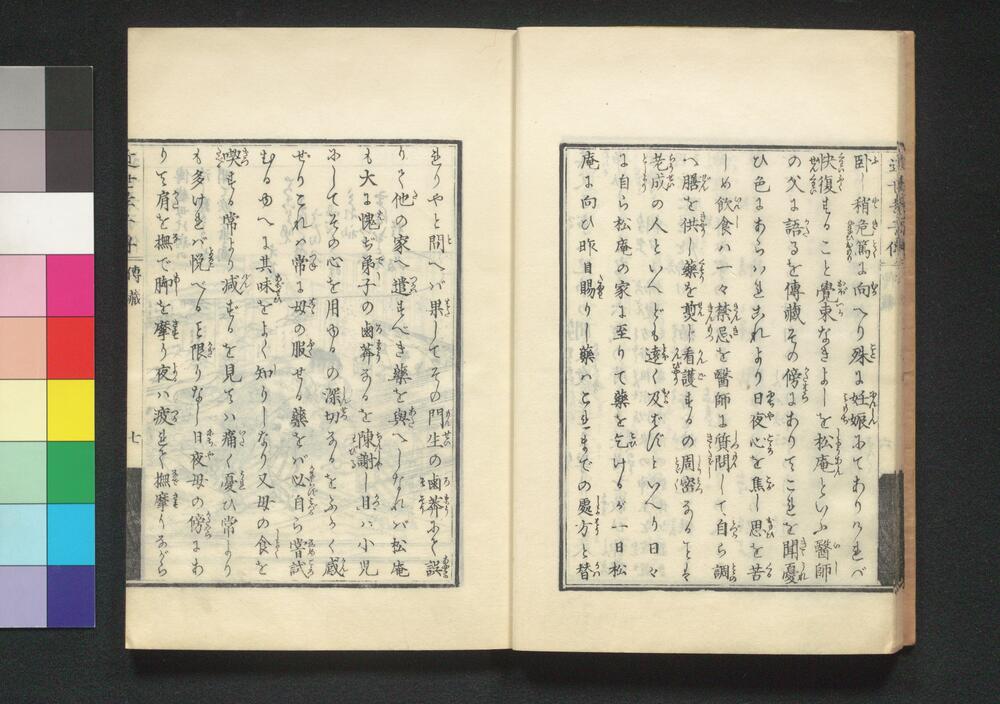 臥し稍危篤に向へり殊に妊娠にてありければ
快復することの覚束なきよしを松庵といふ醫師
の父に語るを傳藏その傍にありてこれを聞憂
ひ色にあらはれこれより日夜心を焦し思を苦
しめ飲食ハ一々禁忌を醫師に質問して自ら調
へ膳を供し藥を煎じ看護するの周密なること
老成の人といへども遠く及ばずといへり日々
に自ら松庵の家に至りて藥を乞けるが一日松
庵に向ひ昨日賜りし藥ハこれまでの處方と替
れりやと問へバ果してその門生の鹵莽にて誤
りて他の家へ遣すべき藥を與へしなれバ松庵
も大に愧ぢ弟子の鹵莽なるを陳謝し且ハ小児
にしてその心を用ゆるの深切なるをふかく感
ぜりこれハ常に母の服せる藥をバ必自ら嘗試
むるゆへに其味をよく知りしなり又母の食を
喫する常より減ずるを見てハ痛く憂ひ常より
も多ければ悦べること限りなし日夜母の傍にあ
りて肩を撫で脚を摩り夜ハ疲れて撫摩りながら
傳藏
七